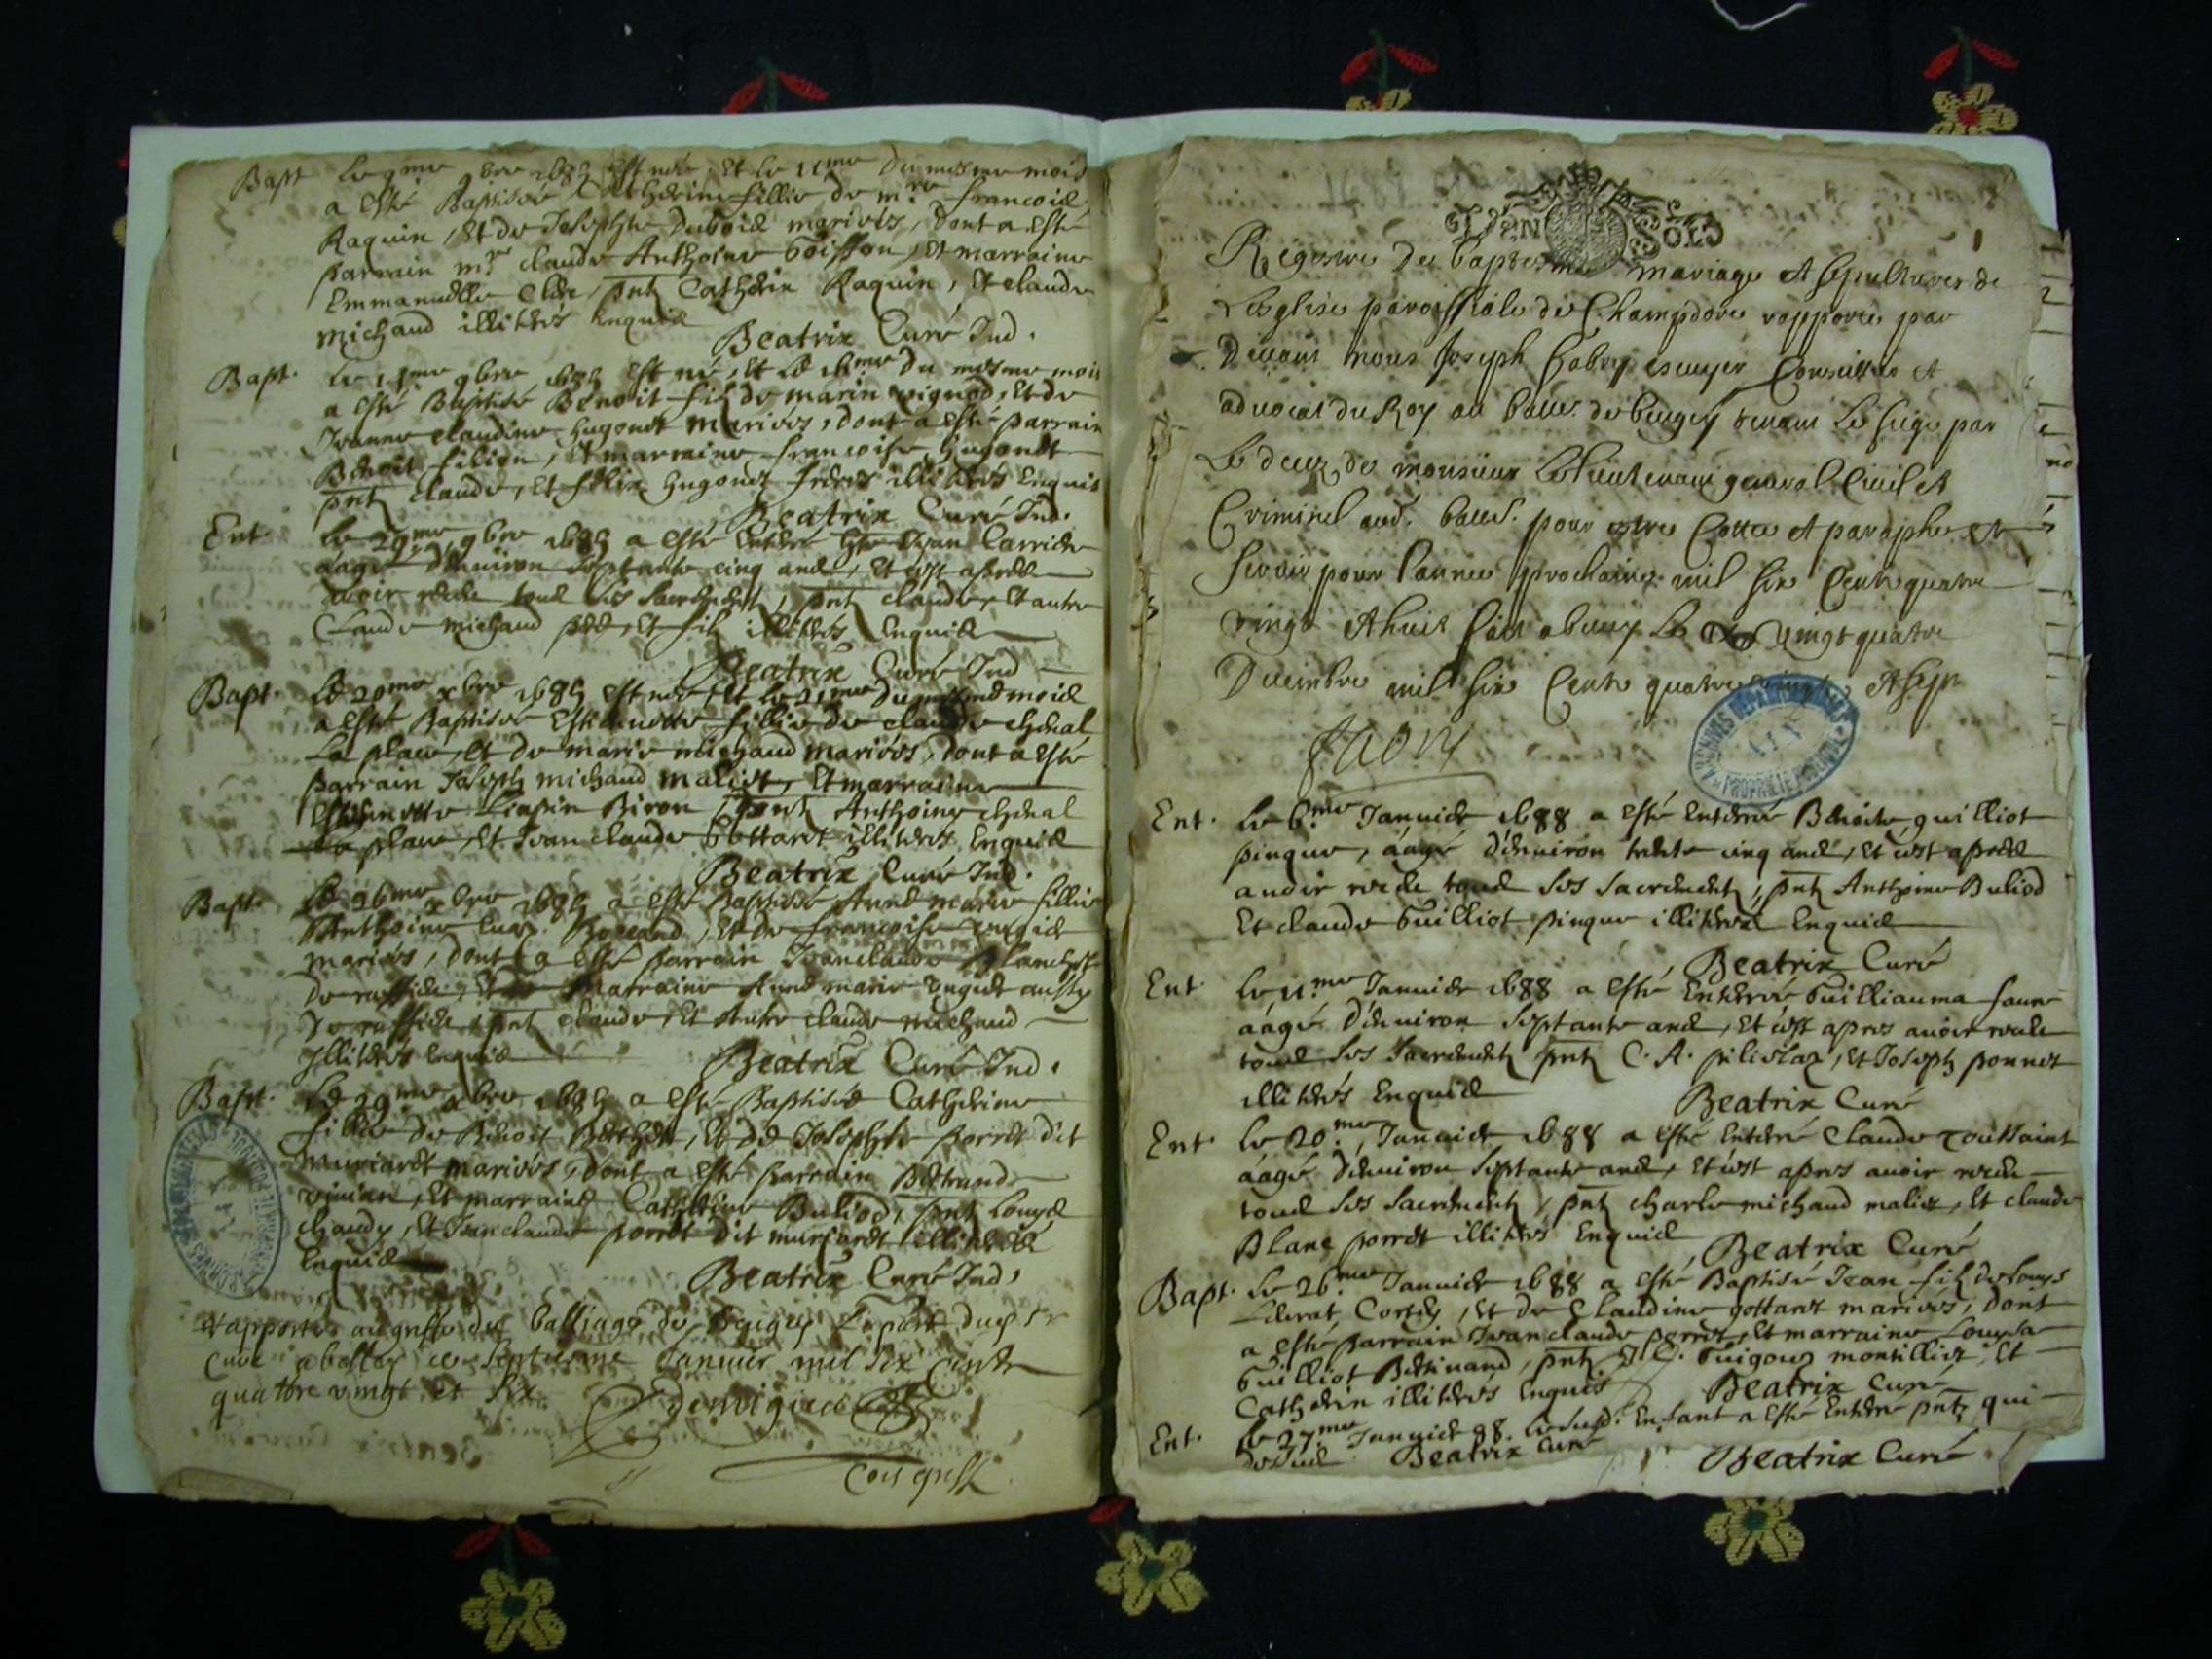 Bapt Le 9me 9bre 1685 est née, Et le 11me du mesme mois
a esté Baptisée Catherine fillie de mre francois
Raquin, Et de Josephte Dubois mariés, dont a esté
parrain mre claude Anthoine Boisson, Et marraine
Emmanuelle, pnts Catherin Raquin, Et claude
michaud illiterés Enquis
Beatrix Curé Ind.
Bapt. Le 9bre 1685 est né, Et le 16me du mesme mois
a esté Baptisé Benoit fils de marin vignod, Et de
Jeanne claudine hugonet mariés, dont a esté parrain
Benoit filion, Et marraine francoise hugonet
pnts claude, Et felix hugonet freres illiterés Enquis
Beatrix Curé Ind.
Ent. Le 29me 9bre 1685 a esté Enterré Jean Carrier
aagé d'environ septante cinq ans, Et c'est apres
avoir receu tous ses sacrements, pnts claude, Et autre
Claude michaud pere, Et fils illiterés Enquis
Beatrix Curé Ind
Bapt. Le 20me xbre 1685 est née Et le 21me du mois
a esté Baptisée Estiennette fillie de claude cheval
La place, Et de marie michaud mariés, dont a esté
parrain Joseph michaud maliet, Et marraine
Estiennette Biron, pnts Anthoine cheval
La place, Et Jean claude Gottaret illiterés Enquis
Beatrix Curé Ind.
Bapt. Le 26me xbre 1685 a esté Baptisée Anne marie fillie
d'Anthoine, Et de francoise
mariés, dont a esté parrain Jean claude Blanchet
Marraine Anne marie aussy
pnts claude, Et Autre claude michaud
Illiterés Enquis
Beatrix Curé Ind.
Bapt. Le 29me xbre 1685 a esté Baptisée Catherine
fillie de Benoit Berthet, Et de Josephte porret dit
muriardt mariés, dont a esté parrain Bertrand
vivian, Et marraine Catherine Buliod, pnts Louys
chandy, Et Jean claude porret dit muriardt illiterés
Enquis
Beatrix Curé Ind.
Rapporté au greffe du balliage de Beugey de la part dud sr
curé a belley ce septiesme Janvier mil six cents
quatre vingt et six
Con greff
UEN SOLS
Regestre des baptesmes mariage et sepultures de
L'esglise paroissiale de Champdore rapportée par
Devant nous Joseph escuyer Conseiller et
advocat du Roy au balle. de beugey tenant le siege par
Le deux de monsieur Le Lieutenant general Civil et
Criminel aud. balle. pour estre Cotte et paraphe et
Servir pour l'année prochaine mil six Cents quatre
vingt et huict faict a beney Le vingt quatre
Decembre mil six Cents quatre vingts et sept
Ent. Le 6.me Janvier 1688 a esté Enterré Benoite guilliot
pingue, aagé d'environ trente cinq ans, Et c'est apres
avoir receu tous ses sacrements, pnts Anthoine Buliod
Et claude Guilliot pingue illiterés Enquis
Beatrix Curé
Ent Le 11.me Janvier 1688 a esté Enterrée Guilliauma faure
aagé d'environ septante ans, Et c'est apres avoir receu
tous ses sacrements pnts C. A. pilislaz, Et Joseph ponnet
illiterés Enquis
Beatrix Curé
Ent. Le 20.me Janvier 1688 a esté Enterré Claude Toussaint
aagé d'environ septante ans, Et c'est apres avoir receu
tous ses sacrements, pnts charle michaud maliet, Et claude
Blanc porret illiterés Enquis
Beatrix Curé
Bapt. Le 26.me Janvier 1688 a esté Baptisé Jean fils de Louys
Liberat Cortey, Et de Claudine gottaret mariés, dont
a esté parrain Jean claude porret, Et marraine Louysa
Guilliot Bertinand, pnts J. C. Guigoux montilliet, Et
Catherin illiterés Enquis
Beatrix Curé
Ent. Le 27.me Janvier 88. Le susd. Enfant a esté Enterré pnts qui
dessus Beatrix Curé
Beatrix Curé